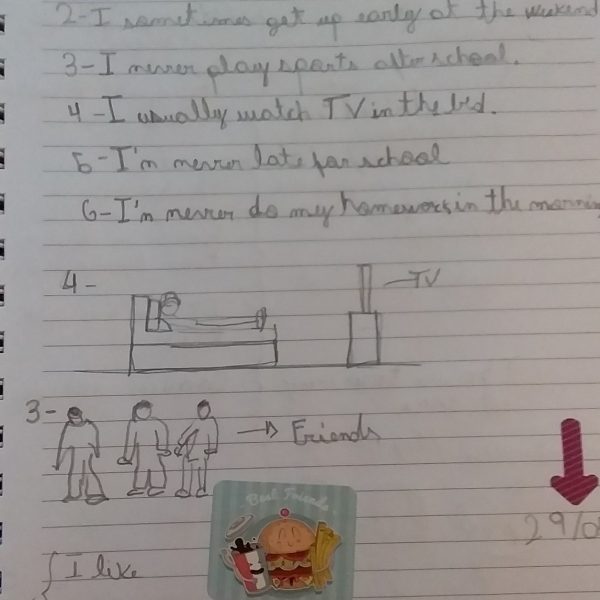 2-I sometimes get up early at the weekend
3-I never play sports after school.
4-I usually watch TV in the bed.
5-I'm never late for school
6-I'm never do my homework in the morning
4-
TV
3-
Friends
Best Friends
29/0
I like